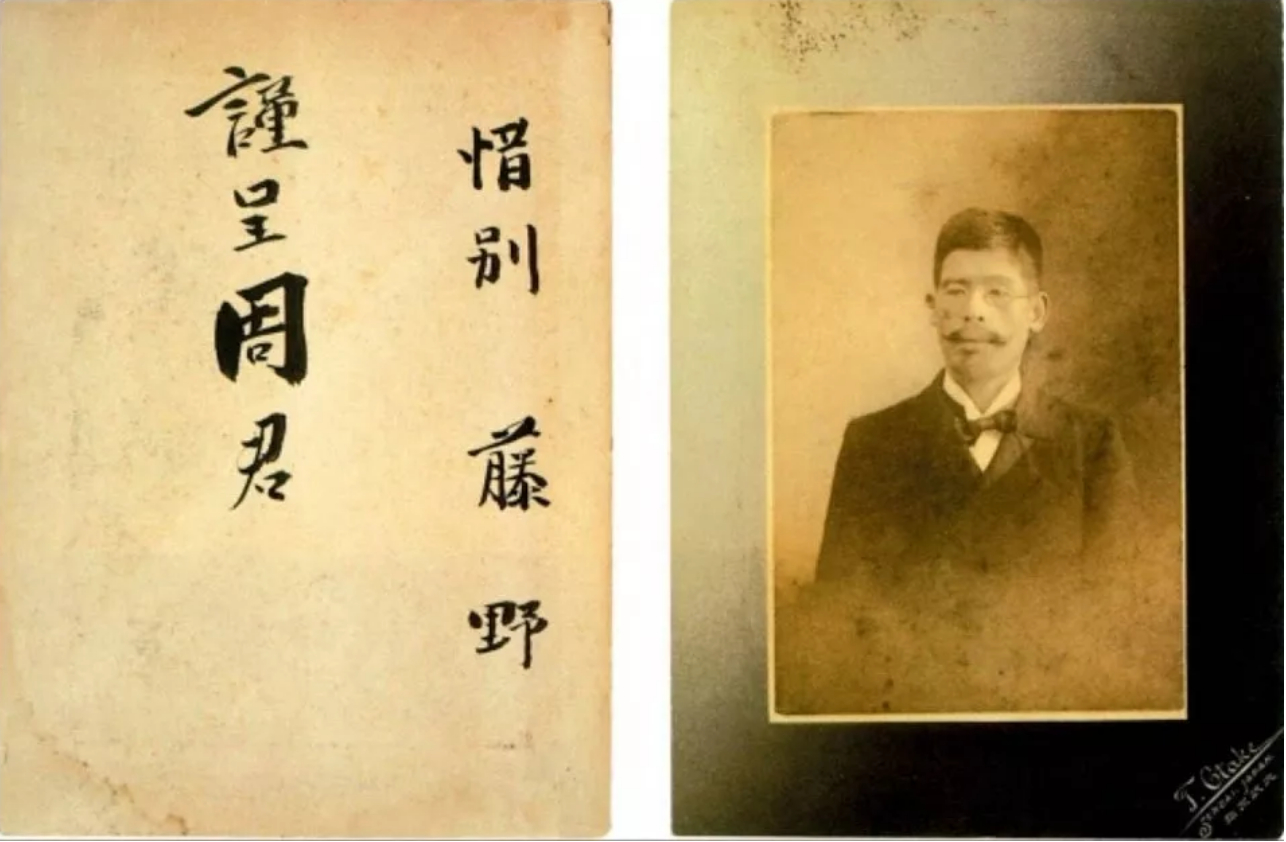 惜別 藤野
謹呈周君
T. Otake
SENDAI JAPAN